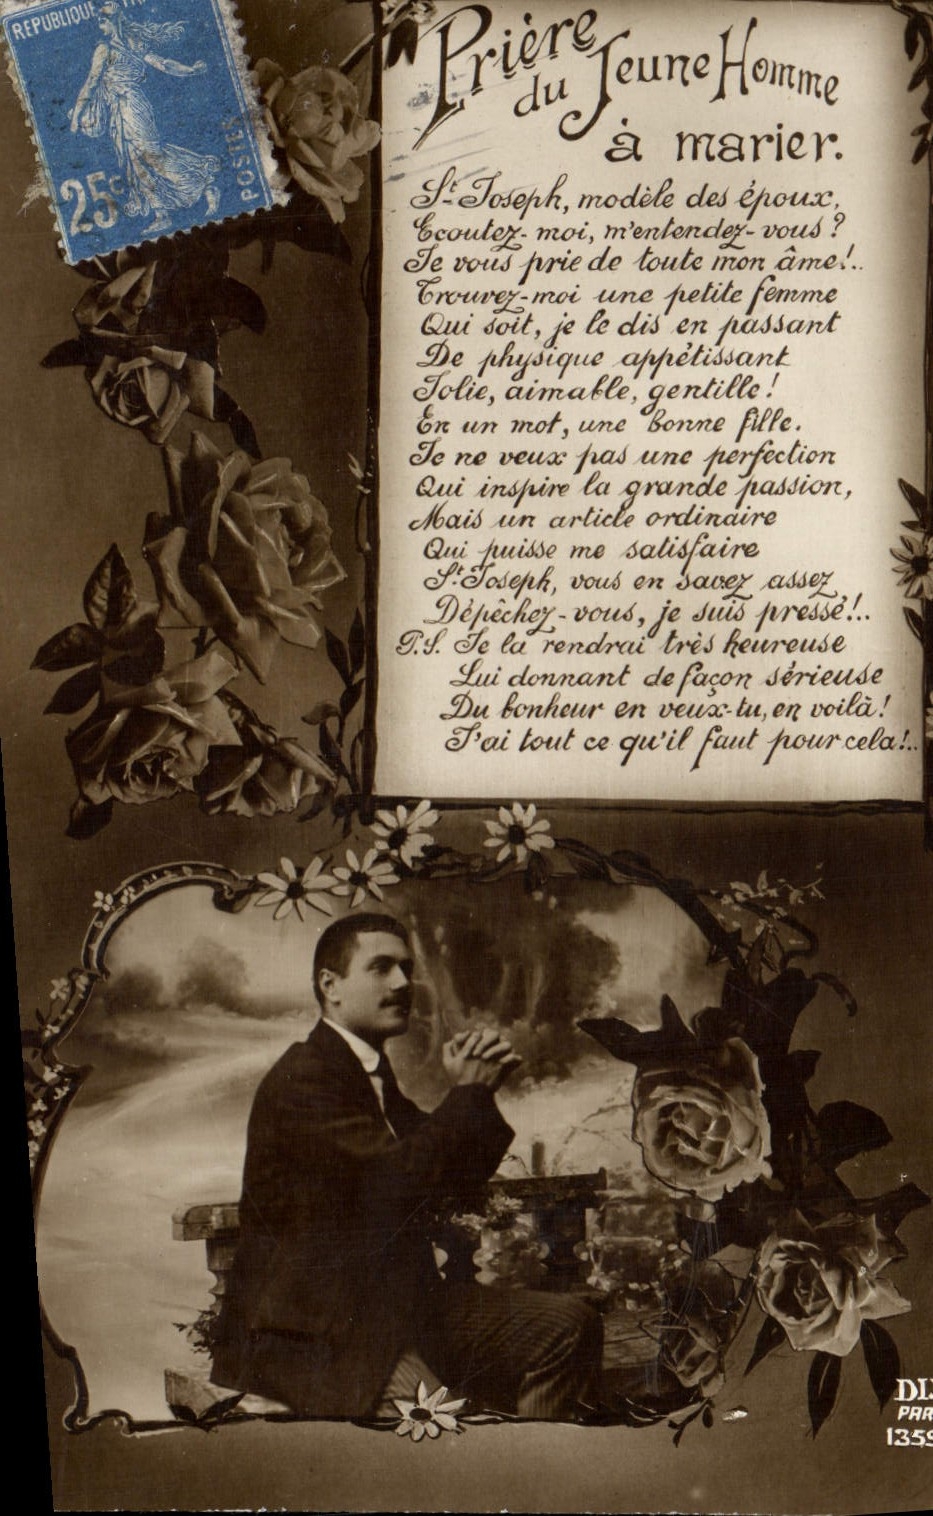 REPUBLIQUE
25c
POSTES
Prière
du Jeune Homme
à marier.
St. Joseph, modèle des époux,
Ecoutez-moi, m'entendez-vous ?
Je vous prie de toute mon âme!..
Trouvez-moi une petite femme
Qui soit, je le dis en passant
De physique appétissant
Jolie, aimable, gentille !
En un mot, une bonne fille.
Je ne veux pas une perfection
Qui inspire la grande passion,
Mais un article ordinaire
Qui puisse me satisfaire
St. Joseph, vous en savez assez,
Dépêchez-vous, je suis pressé!..
P.S. Je la rendrai très heureuse
Lui donnant de façon sérieuse
Du bonheur en veux-tu, en voilà!
J'ai tout ce qu'il faut pour cela!..
DI
PAR
1359